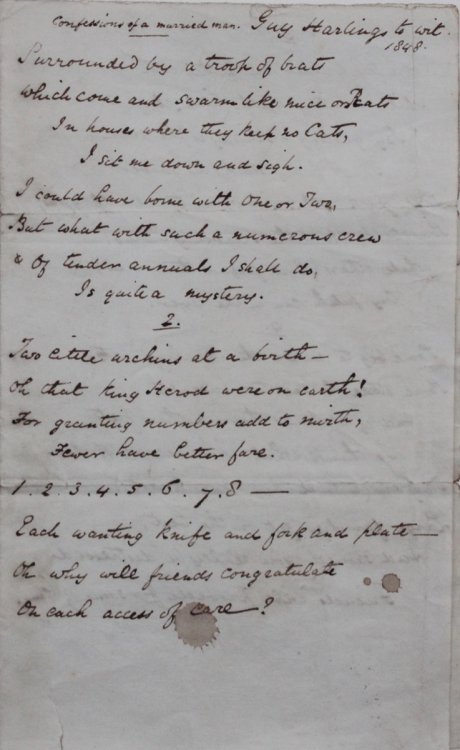 Confessions of a married man. Guy Harlings to wit.
1848.
Surrounded by a troop of brats
Which come and swarm like mice or Rats
In houses where they keep no Cats,
I sit me down and sigh.
I could have borne with One or Two,
But what with such a numerous crew
Of tender annuals I shall do,
Is quite a mystery.
2.
Two little urchins at a birth —
Oh that King Herod were on earth!
For granting numbers add to mirth,
Fewer have better fare.
1. 2. 3. 4. 5. 6. 7. 8 —
Each wanting knife and fork and plate —
Oh why will friends congratulate
On each access of care?